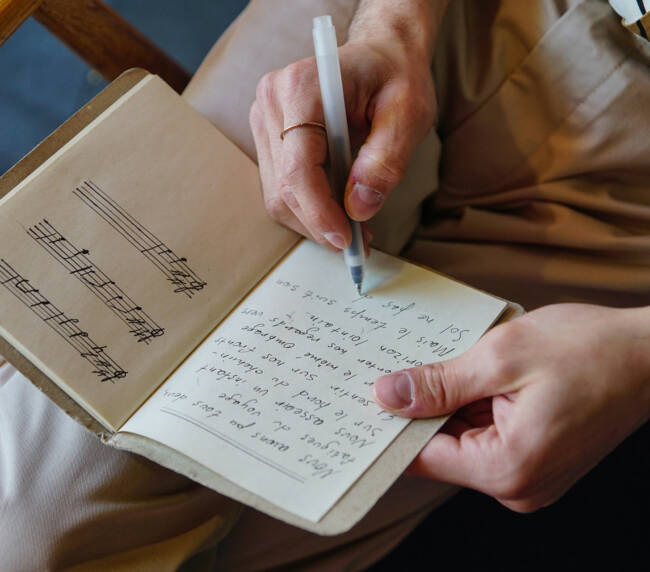 Nous avons pu tous deux
fatigués du voyage
Nous asseoir un instant
sur le bord du chemin
sentir sur nos fronts
le même ombrage
nos regards vers
orizon lointain.
Mais le temps suit son
Sol ne pas